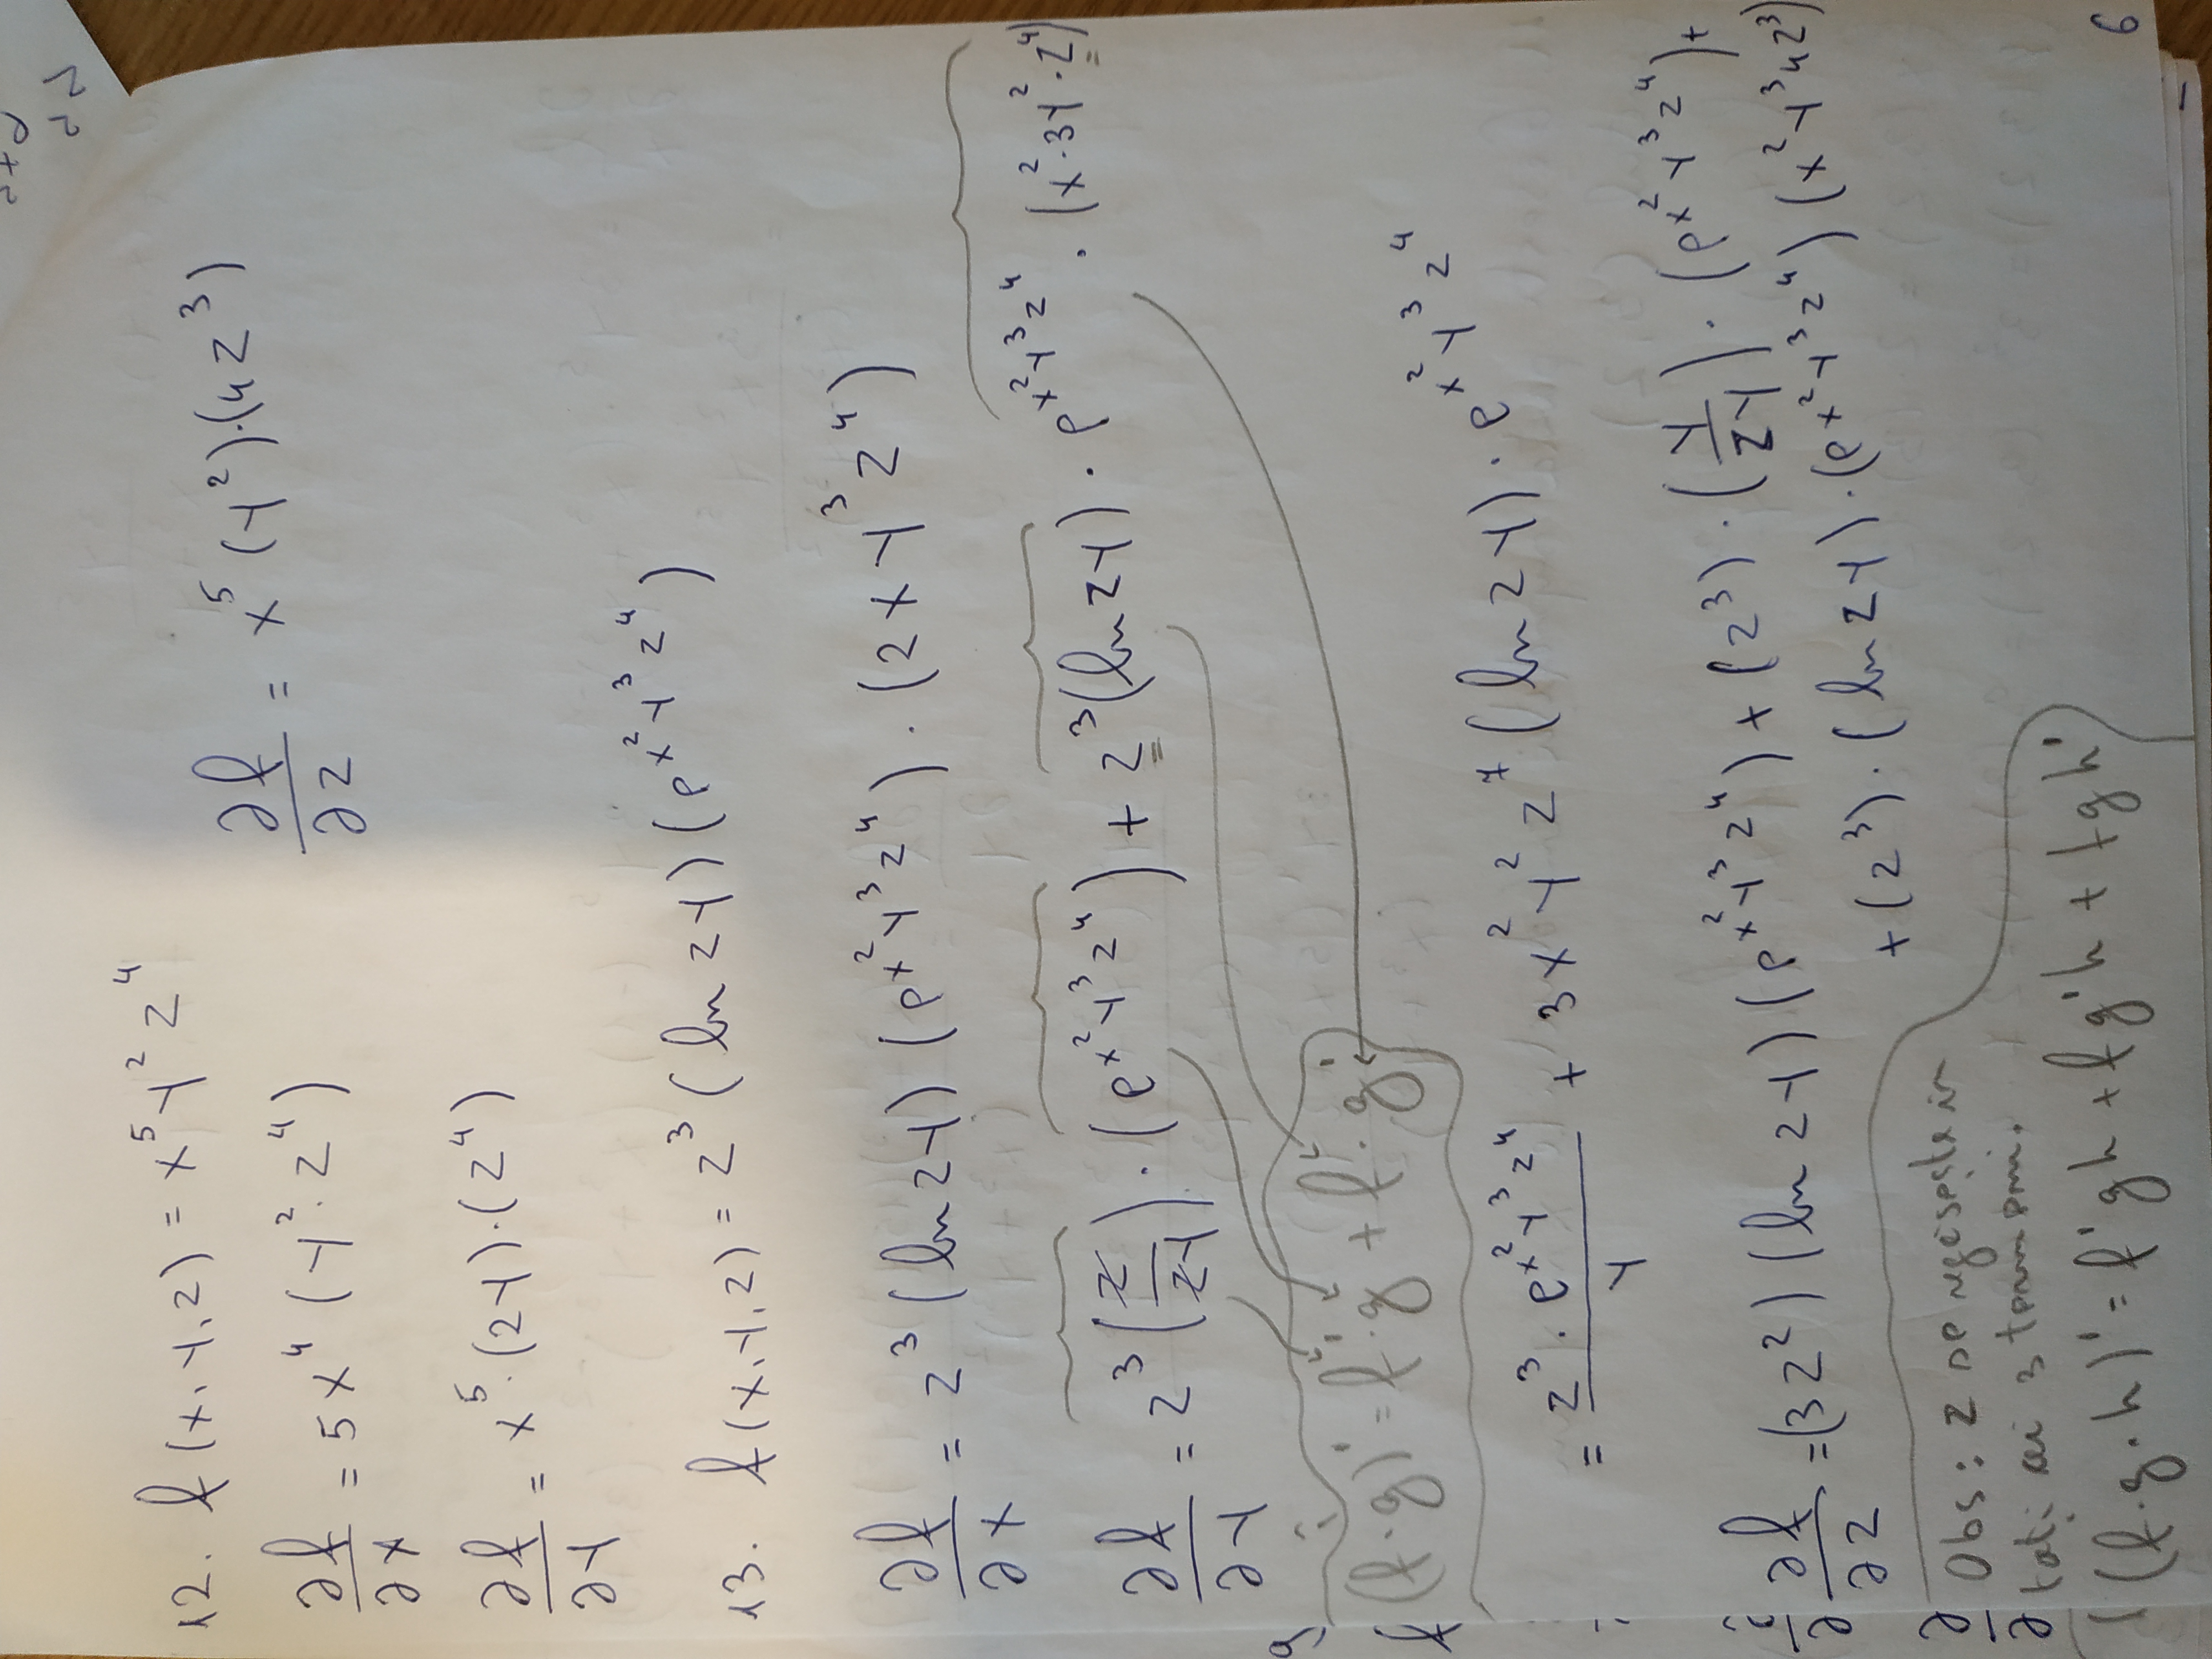 12. f(x,y,z) = x⁵y²z⁴
∂f/∂x = 5x⁴(y²·z⁴)
∂f/∂z = x⁵(y²)·(4z³)
∂f/∂y = x⁵·(2y)·(z⁴)
13. f(x,y,z) = z³(ln zy)(e^(x²y³z⁴))
∂f/∂x = z³(ln zy)(e^(x²y³z⁴))·(2xy³z⁴)
∂f/∂y = z³(z/zy)·(e^(x²y³z⁴)) + z³(ln zy)·e^(x²y³z⁴)·(x²·3y²·z⁴)
(f·g)' = f'·g + f·g'
= z³·e^(x²y³z⁴)/y + 3x²y²z⁷(ln zy)·e^(x²y³z⁴)
∂f/∂z = (3z²)(ln zy)(e^(x²y³z⁴)) + (z³)·(y/zy)·(e^(x²y³z⁴)) +
+ (z³)·(ln zy)·(e^(x²y³z⁴))(x²y³4z³)
Obs: z se regăsește în
toți cei 3 termeni.
(f·g·h)' = f'gh + fg'h + fgh'
6